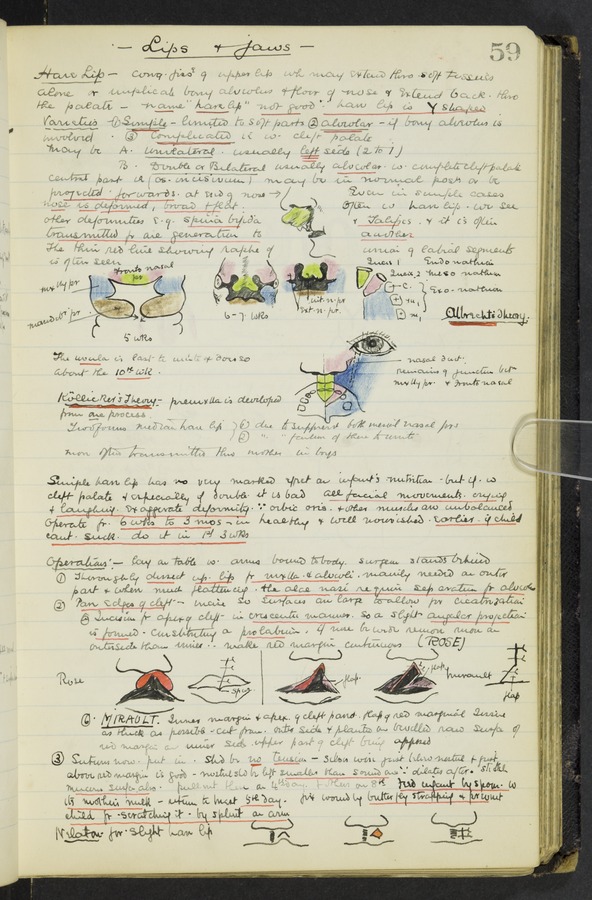 Lips & Jaws
59
Hare Lip - cong. fiss. of upper lip wh may extend thro soft tissues
alone or implicate bony alveolus & floor of nose & extend back thro
the palate - name "hare lip" not good: hare lip is Y shaped
Varieties ① Simple - limited to soft parts ② alveolar - if bony alveolus is
involved. ③ Complicated is w. cleft palate
May be A. Unilateral. usually left side (2 to 1)
B. Double or Bilateral usually alveolar w. complete cleft palate
central part ie (os. incisivum) may be in normal posn or be
projected forwards at end of nose → Even in simple cases
nose is deformed, broad & flat. Often w hare lip we see
other deformities e.g. spina bifida & Talipes. & it is often
transmitted fr one generation to another
The thin red line showing raphe of union of labial segments
is often seen
fronto nasal pr
mx lly pr
mandib pr
5 wks
6-7 wks
int. n. pr
ext. n. pr.
Endo nathion
Meso nathion
Exo-nathion
Albrechts theory.
The uvula is last to unite & does so
about the 10th wk.
nasal duct.
remains of junction bet
mx lly pr & fronto nasal
Kölliker's Theory - premxlla is developed
from one process
Two forms median hare lip ① due to suppression of both mesial nasal prs
② " " failure of them to unite
more often transmitted thro mother in boys
Simple hare lip has no very marked effect on infant's nutrition - but if w
cleft palate & especially if double it is bad all facial movements. crying
& laughing exaggerate deformity ∵ orbic oris & other muscles are unbalanced
Operate fr 6 wks to 3 mos - in healthy & well nourished. earlier if child
cant suck do it in 1st 3 wks
Operation: - lay on table w. arms bound to body. surgeon stands behind
① Thoroughly dissect up lip fr mxlla & alveoli. mainly needed on outer
part & when much flattening the alae nasi require separation fr alveolus
② Pare edges of cleft - incise so surfaces are large to allow for cicatrisation
Incision fr apex of cleft in crescentic manner. So a slight angular projection
is formed constituting a prolabium.
outer side than inner make red margin continuous (ROSE)
Rose
flap
flap
Mirault
flap
MIRAULT. Inner margin & apex of cleft pared. flap of red marginal tissue
as thick as possible - cut from outer side & planted on bevelled raw surface of
red margin on inner side upper part of cleft being apposed
③ Sutures now put in. Shd be no tension - silkworm gut thro nostril & just
above red margin is good - nostril shd be left smaller than sound one ∵ dilates after. Stitch
mucous surfs also. pull out them on 4th day & others on 8th feed infant by spoon w
its mothers milk - return to breast 5th day. fix wound by butterfly strapping & prevent
child fr scratching it by splint on arm
Nélaton for slight hare lip